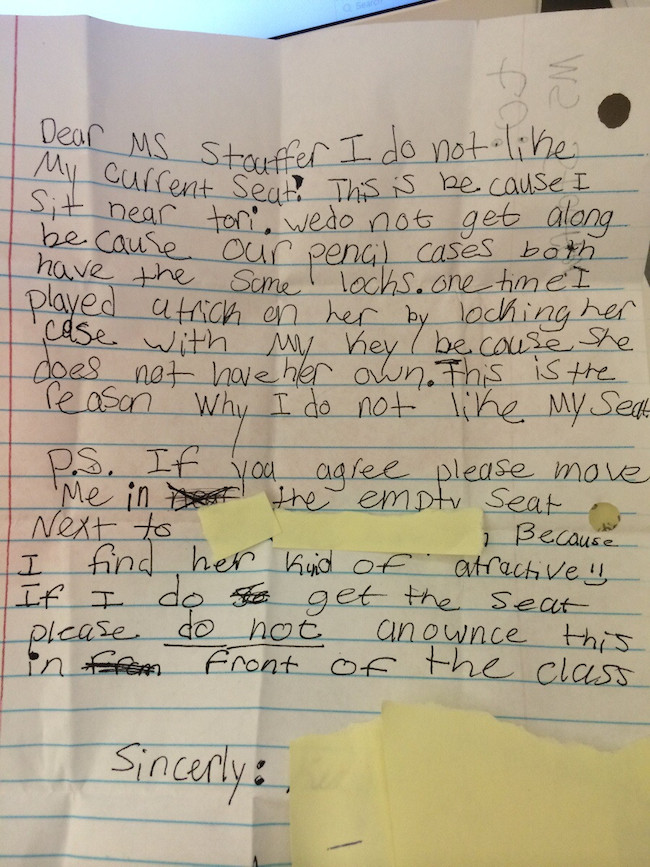 Search
Dear MS Stouffer I do not like
My current seat. This is be cause I
sit near tori. wedo not get along
be cause our pencil cases both
have the same locks. one time I
played atrick on her by locking her
case with My key because she
does not have her own. This is the
reason why I do not like My Seat
P.S. If you agree please move
Me in the empty seat
Next to Because
I find her kind of atractive!!
If I do get the seat
please do not anownce this
in front of the class
Sincerly: